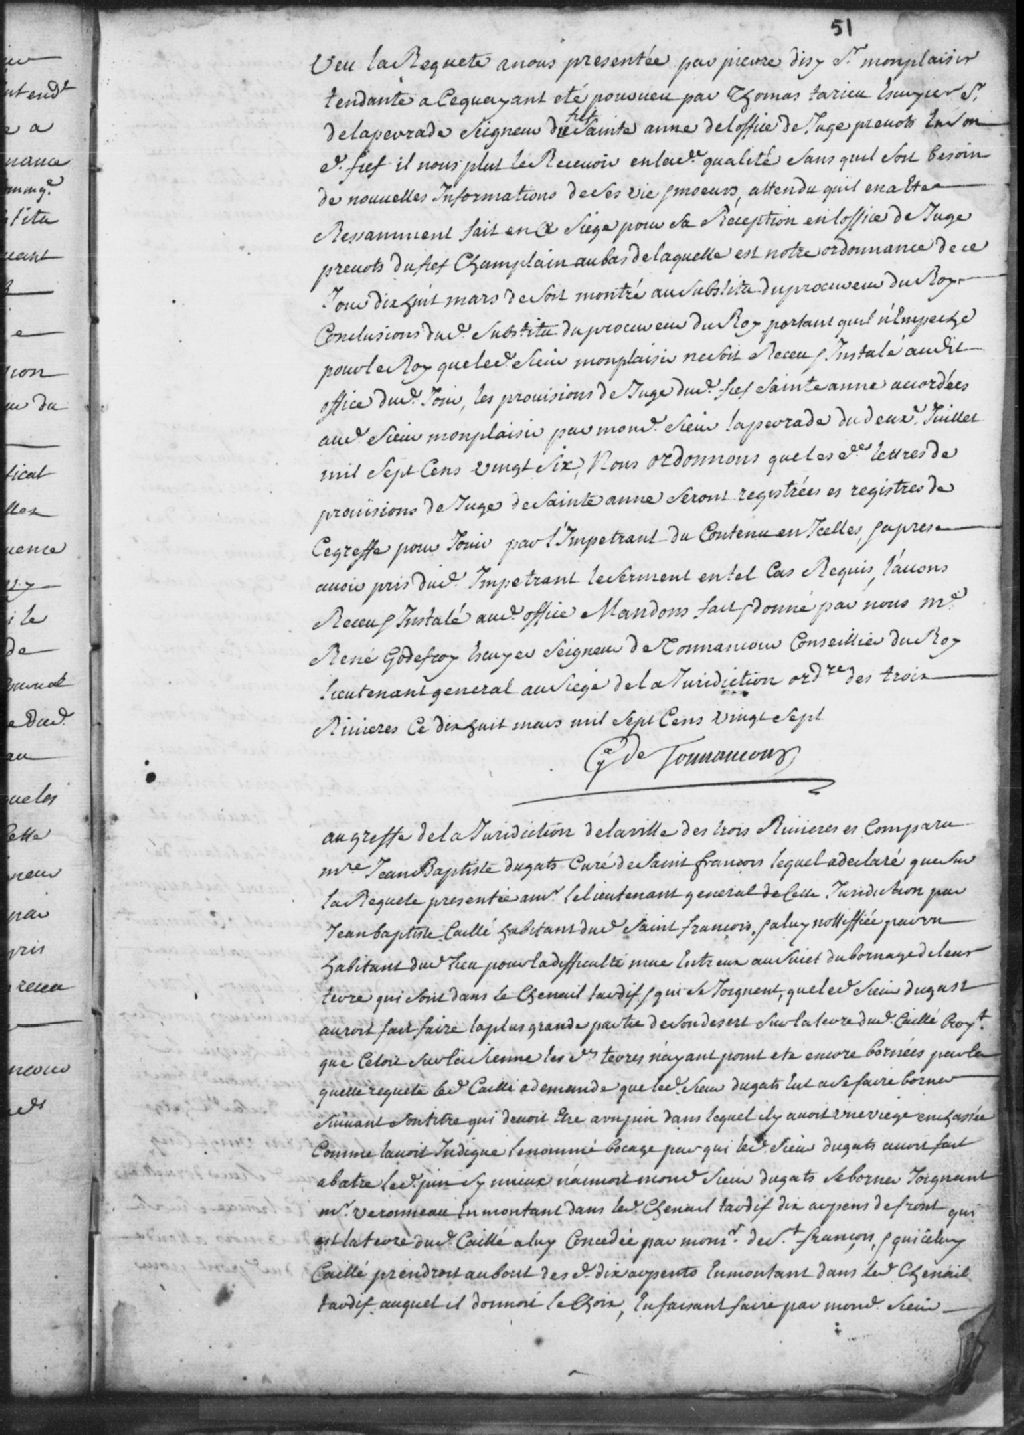 51
Veu la Requete a nous presentée par pierre disy Sr. monplaisir
tendante a Ce quayant eté pourveu par Thomas tarieu Escuyer Sr.
de laperade Seigneur du fief Sainte anne de loffice de Juge prevots En Son
d. fief il nous plut le Recevoir en lad. qualité Sans quil Soit besoin
de nouvelles Informations de Ses vie & moeurs, attendu quil en a Ete
Ressamment fait en Ce Siege pour Sa Reception en loffice de Juge
prevots du fief Champlain au bas de laquelle est notre ordonnance de ce
Jour dix huit mars de Soit montré au Substitu du procureur du Roy
Conclusions dud. Substitu du procureur du Roy portant quil n'Empeche
pour le Roy que led. Sieur monplaisir ne Soit Receu & Instalé audit
office dud. Jour, les provisions de Juge dud. fief Sainte anne accordées
aud. Sieur monplaisir par mond. Sieur laperade du deuxe. Juillet
mil Sept Cens vingt Six, Nous ordonnons que les des. lettres de
provisions de Juge de Sainte anne Seront registrées es registres de
Ce greffe pour Jouir par l'Impetrant du Contenu en Icelles, & apres
avoir pris dud. Impetrant le Serment en tel Cas Requis, l'avons
Receu & Instalé aud. office Mandons fait & donné par nous Me.
René Godefroy Escuyer Seigneur de Tonnancour Conseillier du Roy
Lieutenant general au Siege de la Juridiction ordre des trois
Rivieres Ce dix huit mars mil Sept Cens vingt Sept
G de Tonnancour
au greffe de la Juridiction de la ville des trois Rivieres es Comparu
mre Jean Baptiste dugats Curé de Saint francois lequel a declaré que Sur
la Requete presentée a mr. le lieutenant general de Cette Juridiction par
Jean baptiste Caillé habitant dud. Saint francois, & a luy nottiffiée par un
habitant dud. lieu pour la difficulté mue Entreux au Sujet du bornage de leurs
terre qui Sont dans le Chenail tardif & qui Se Joignent, que led. Sieur dugast
auroit fait faire la plus grande partie de Son desert Sur la terre dud. Caillé Croyt.
que Cetoit Sur la Sienne les d. terres n'ayant point eté encore bornées par la
quelle requete led. Caillé a demandé que led. Sieur dugats Eut a Se faire borner
Suivant Son titre qui devoit Etre a un pin dans lequel il y avoit une viege enchassée
Comme lavoit Indiqué le nommé bocage par qui led. Sieur dugats avoit fait
abatre led. pin Sy mieux n'aimoit mond. Sieur dugats Se borner Joignant
mr. veronneau En montant dans led. Chenail tardif dix arpens de front qui
est la terre dud. Caillé a luy Concedée par monr. de St. francois, & qui Celuy
Caillé prendroit au bout des d. dix arpents En montant dans led. Chenail
tardif auquel il donnoit le Choix, En faisant faire par mond. Sieur